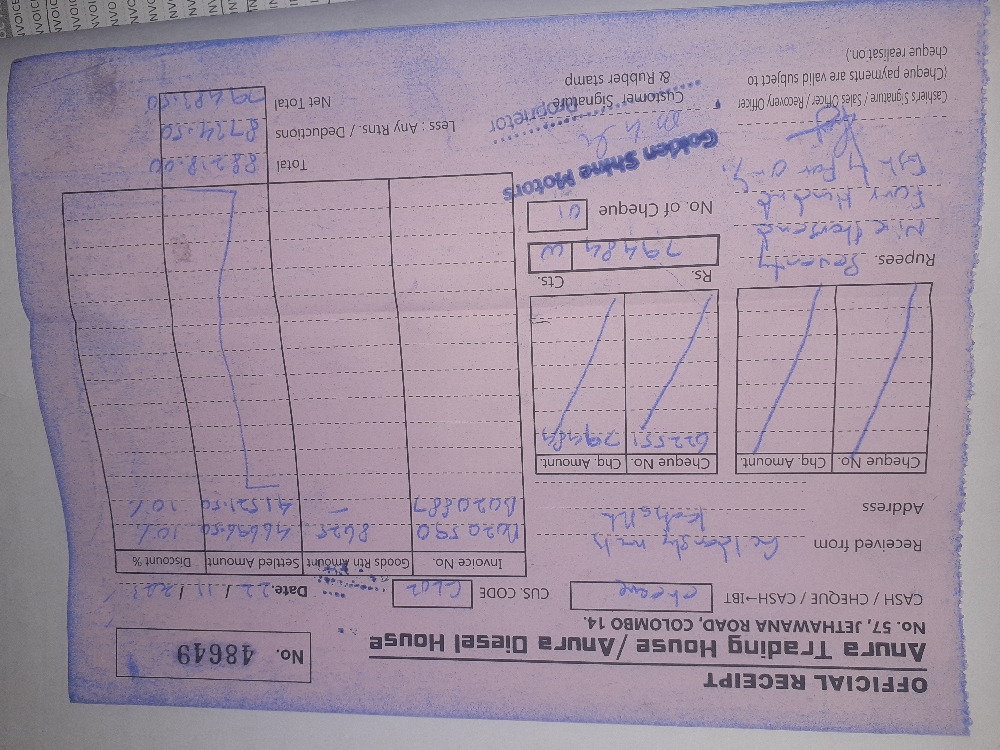 OFFICIAL RECEIPT
Anura Trading House / Anura Diesel House
No. 57, JETHAWANA ROAD, COLOMBO 14.
No. 48649
CASH / CHEQUE / CASH→IBT cheque
CUS. CODE GL02
Date. 22 / 11 /
Received from
Address
Cheque No. Chq. Amount. Cheque No. Chq. Amount.
622551 79484
Invoice No. Goods Rtn Amount Settled Amount Discount %
B020590 8625 46696.50 10%
B020887 — 41521.50 10%
Rs. Cts.
79484
Rupees. Seventy
Nine thousand
Four Hundred
No. of Cheque 01
Golden Shine Motors
Proprietor
Total 88218.00
Less : Any Rtns. / Deductions 8734.50
Net Total 79483.50
Cashier's Signature / Sales Officer / Recovery Officer
(Cheque payments are valid subject to
cheque realisation.)
Customer Signature
& Rubber stamp